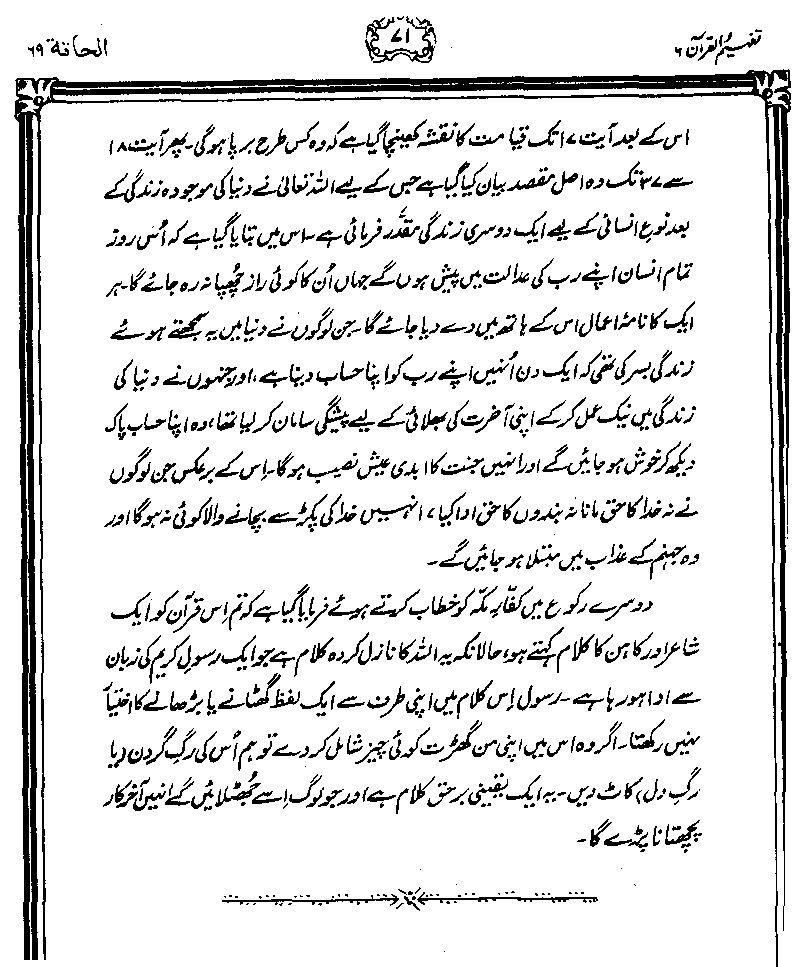 تفہیم القرآن ۶
۷۱
الحاقة ۶۹
اس کے بعد آیت ۱۷ تک قیامت کا نقشہ کھینچا گیا ہے کہ وہ کس طرح برپا ہوگی۔ پھر آیت ۱۸
سے ۳۷ تک وہ اصل مقصد بیان کیا گیا ہے جس کے لیے اللہ تعالیٰ نے دنیا کی موجودہ زندگی کے
بعد نوعِ انسانی کے لیے ایک دوسری زندگی مقدَّر فرمائی ہے۔ اس میں بتایا گیا ہے کہ اُس روز
تمام انسان اپنے رب کی عدالت میں پیش ہوں گے جہاں اُن کا کوئی راز چُھپا نہ رہ جائے گا۔ ہر
ایک کا نامۂ اعمال اس کے ہاتھ میں دے دیا جائے گا۔ جن لوگوں نے دنیا میں یہ سمجھتے ہوئے
زندگی بسر کی تھی کہ ایک دن اُنہیں اپنے رب کو اپنا حساب دینا ہے، اور جنہوں نے دنیا کی
زندگی میں نیک عمل کر کے اپنی آخرت کی بھلائی کے لیے پیشگی سامان کر لیا تھا، وہ اپنا حساب پاک
دیکھ کر خوش ہو جائیں گے اور انہیں جنت کا ابدی عیش نصیب ہوگا۔ اِس کے برعکس جن لوگوں
نے نہ خدا کا حق مانا نہ بندوں کا حق ادا کیا، انہیں خدا کی پکڑ سے بچانے والا کوئی نہ ہوگا اور
وہ جہنم کے عذاب میں مبتلا ہو جائیں گے۔
دوسرے رکوع میں کفّارِ مکّہ کو خطاب کرتے ہوئے فرمایا گیا ہے کہ تم اِس قرآن کو ایک
شاعر اور کاہن کا کلام کہتے ہو، حالانکہ یہ اللہ کا نازل کردہ کلام ہے جو ایک رسولِ کریم کی زبان
سے ادا ہو رہا ہے۔ رسول اِس کلام میں اپنی طرف سے ایک لفظ گھٹانے یا بڑھانے کا اختیار
نہیں رکھتا۔ اگر وہ اس میں اپنی من گھڑت کوئی چیز شامل کر دے تو ہم اُس کی رگِ گردن (یا
رگِ دل) کاٹ دیں۔ یہ ایک یقینی برحق کلام ہے اور جو لوگ اِسے جُھٹلائیں گے انہیں آخرکار
پچھتانا پڑے گا۔